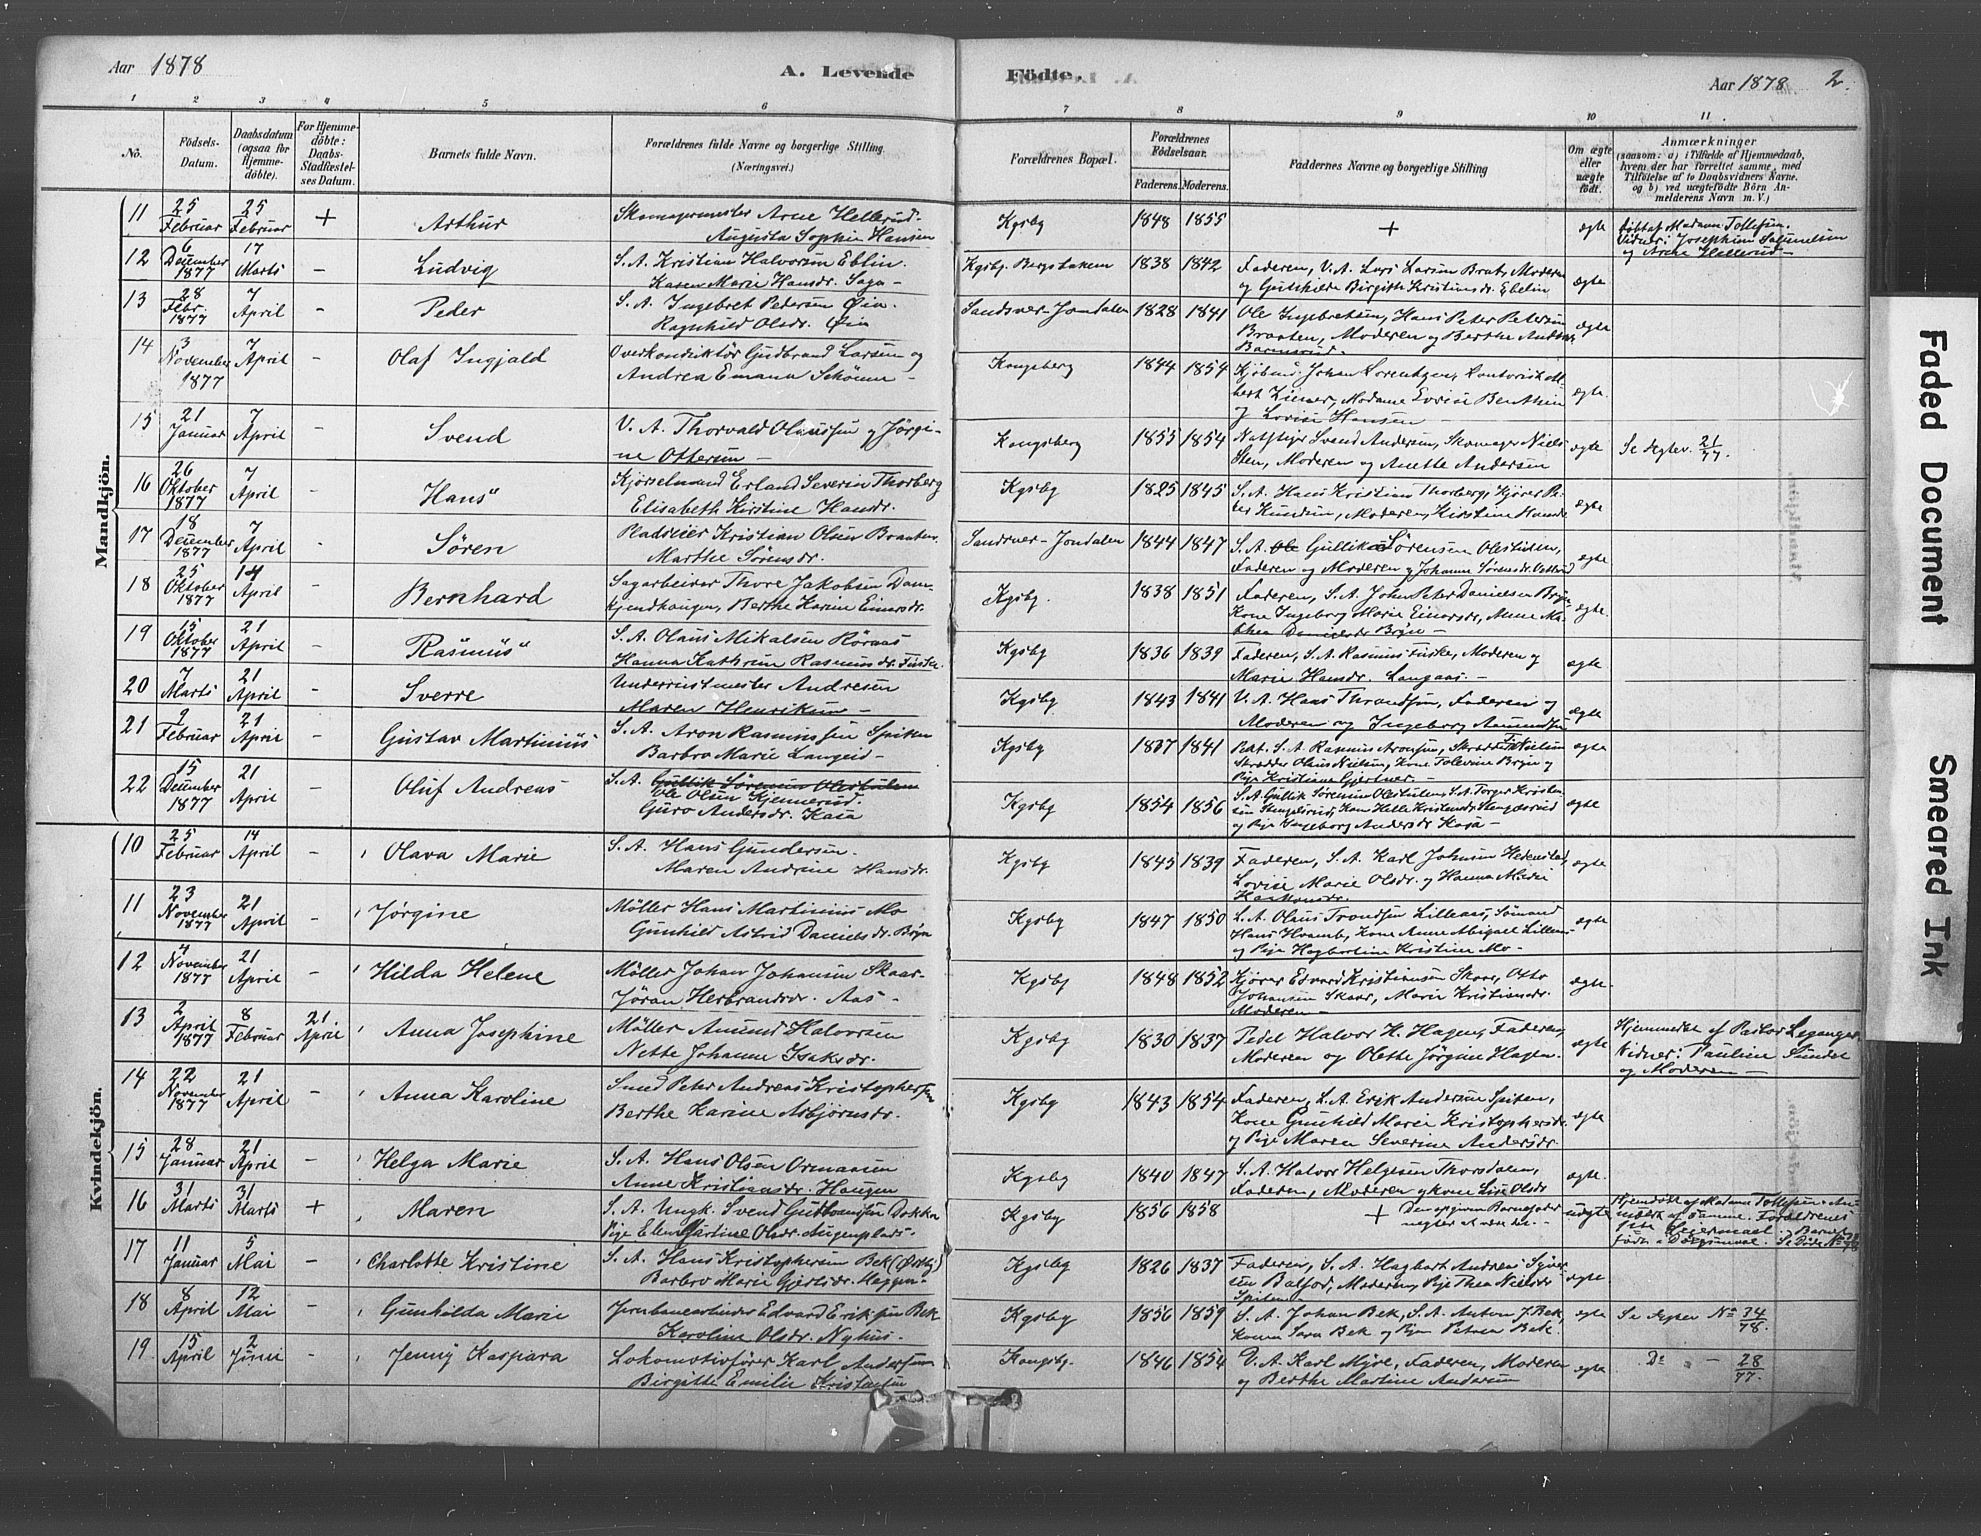 Aar 1878
A. Levende
Födte.
Aar 1878
2.
1 2 3 4 5 6 7 8 9 10 11
No.
Födsels-
Datum.
Daabsdatum
(ogsaa for
Hjemme-
döbte).
For Hjemme-
döbte:
Daabs-
Stadfæstel-
ses Datum.
Barnets fulde Navn.
Forældrenes fulde Navne og borgerlige Stilling
(Næringsvei.)
Forældrenes Bopæl.
Forældrenes
Födselsaar.
Faderens. Moderens.
Faddernes Navne og borgerlige Stilling
Om ægte
eller
uægte
födt.
Anmærkninger
(saasom: a) i Tilfælde af Hjemmedaab,
hvem der har forrettet samme, med
Tilföielse af to Daabsvidners Navne.
og b) ved uægtefödte Börn An-
melderens Navn m. V.)
Mandkjön.
11 25 Februar 25 Februar + Arthur
Skomagermester Arne Hellerud
Augusta Sophie Hansen
Kgsby 1848 1855 + ægte
døbt af Madam Tollefsen.
Vidner: Josephine
og Arne Hellerud
12 6 December 1877 17 Marts - Ludvig
S. A. Kristian Halvorsen Eblin.
Karen Marie Hansdr. Saga -
Kgsby. Bergstakem 1838 1842
Faderen, V. A. Lars Larsen Brat, Moderen
og Birgith Kristiansdr. Ebelin
ægte
13 28 Febr. 1877 7 April - Peder
S. A. Ingebret Pedersen Øia
Ragnhild Olsdr. Øia
Sandsver-Jondalen 1828 1841
Ole Ingebretsen, Hans Peter Petersen
Braaten, Moderen og Berthe
ægte
14 3 November 1877 7 April - Olaf Ingjald
Overkonduktør Gudbrand Larsen og
Andrea Emana Schönne -
Kongsberg 1844 1854
Kjøbmd. Johan Lorentzen, Kontorist Al-
bert Madame Lovise Benthin
og Lovise Hansen -
ægte.
15 21 Januar 7 April - Svend
V. A. Thorvald Olaussen og Jörgi-
ne Ottersen -
Kongsberg 1855 1854
Svend Andersen, Skomager Niels
Sten, Moderen og Anette Andersen
ægte Se Ægtev. 21/77.
16 26 Oktober 1877 7 April - Hans
Kjörselmand Erland Severin Thorberg
Elisabeth Kirstine Hansdr.
Kgsby 1825 1845
S. A. Hans Kristian Thorberg, Kjører Pe-
ter Knudsen, Moderen, Kirstine
ægte
17 18 December 1877 7 April - Sören
Pladseier Kristian Olsen Braaten
Marthe Sörensdr.
Sandsver-Jondalen 1844 1847
S. A. Gullik Sörensen Olestulen,
Faderen og Moderen og Johanne Sørensdr.
ægte
18 25 Oktober 1877 14 April - Bernhard
Sagarbeider Thore Jakobsen Dam-
kjendhaugen, Berthe Karine Einarsdr.
Kgsby. 1838 1851
Faderen, S. A. John Peter Danielsen Bryn
Kone Ingeborg Marie Einarsdr, Anne Ma-
thea Danielsdr Bryn -
ægte
19 15 Oktober 1877 21 April - Rasmus
S. A. Olaus Mikalsen Röraas
Hanna Kathrine Rasmusdr. Fiske.
Kgsby 1836 1839
Faderen, S. A. Rasmus Fiske, Moderen og
Marie Hansdr. Langaas -
ægte
20 7 Marts 21 April - Sverre
Underrustmester Andresen
Maren Henriksen -
Kgsby 1843 1841
V. A. Hans Throndsen, Faderen og
Moderen og Ingeborg Amundsen
ægte
21 9 Februar 21 April - Gustav Martinius
S. A. Aron Rasmussen Spiten
Barbro Marie Langeid -
Kgsby 1837 1841
S. A. Rasmus Aronsen, Skrædder
Skrædder Olaus Nielsen, Kone Tolevine Bryn og
Pige Kristiane Gjertner. -
ægte
22 15 December 1877 21 April - Oluf Andreas
S. A. Gullik Sörensen Olestulen
Ole Olsen Kjennerud.
Guro Andersdr. Kasa
Kgsby 1854 1856
S. A. Gullik Sörensen Olestulen, S. A. Torger Kristen-
sen Stengelsrud, Kone Helle Kristensdr. Stengelsrud
og Pige Ingeborg Andersdr. Kasa -
ægte
Kvindekjön.
10 25 Februar 14 April - Olava Marie
S. A. Hans Gundersen.
Maren Andrine Hansdr.
Kgsby 1845 1839
Faderen, S. A. Karl Johnsen Hedenstad,
Lovise Marie Olsdr. og Hanna Marie
ægte
11 23 November 1877 21 April - Jørgine
Möller Hans Martinius Mo
Gunhild Astrid Danielsdr. Bryn
Kgsby 1847 1850
S. A. Olaus Trondsen Lilleaas, Sömand
Hans Hvamb, Kone Anne Abigael Lilleaas
og Pige Hagbartine Kristine Mo -
ægte
12 4 November 1877 21 April - Hilda Helene
Möller Johan Johansen Skaar-
Jöran Herbrandsdr. Aas -
Kgsby 1848 1852
Kjører Edvard Kristiansen Skaar, Otto
Johansen Skaar, Marie Kristiansdr.
Moderen -
ægte.
13 2 April 1877 8 Februar 21 April Anna Josephine
Möller Amund Halvorsen
Nette Johanne Isaksdr.
Kgsby 1830 1837
Pedel Halvor H. Hagen, Faderen,
Moderen og Olette Jörgine Hagen.
ægte
Hjemmedøbt af Pastor Leganger
Vidner: Pauline Sundet
og Moderen -
14 22 November 1877 21 April - Anna Karoline
Smed Peter Andreas Kristophersen
Berthe Karine Asbjörnsdr.
Kgsby 1843 1854
Faderen, S. A. Erik Andersen Spiten,
Kone Gunhild Marie Kristophersdr.
og Pige Maren Severine Andersdr.
ægte
15 28 Januar 21 April - Helga Marie
S. A. Hans Olsen Ormaasen
Anne Kristiansdr. Haugen
Kgsby 1840 1847
S. A. Halvor Helgesen Thorsdalen,
Faderen, Moderen og kone Lise Olsdr.
ægte.
16 31 Marts 31 Marts + Maren
S. A. Ungk. Svend Gudbrandsen Dokka
Pige Ellen Gurine Olsdr. Augenplads -
Kgsby 1856 1858
+ Den opgivne Barnefader
negter at være det. -
uægte
Hjemdøbt af Madame Tollefsen. An-
meldt af samme. Forældrenes
1ste Leiermaal. Barnet
født i Dølgsmaal. Se Døde No
17 11 Januar 5 Mai - Charlotte Kristine
S. A. Hans Kristophersen Bek (Østby)
Barbro Marie Gjertsdr.
Kgsby 1826 1837
Faderen, S. A. Hagbart Andreas Syver-
sen Balfod, Moderen, Pige Thea Nielsdr
Spiten
ægte.
18 8 April 12 Mai - Gunhilda Marie
Jernbanearbeider Edvard Eriksen Bek
Karoline Olsdr. Nyhus.
Kgsby 1856 1859
S. A. Johan Bek, S. A. Anton J. Bek,
Konen Sara Bek og Pigen Petrea Bek.
ægte Se Ægtev No 24/78.
19 15 April 2 Juni - Jenny Kaspara
Lokomotivfører Karl Andersen
Birgitte Emilie Kristensen
Kongsb. 1846 1854
V. A. Karl Myre, Faderen, Moderen
og Berthe Martine Andersen
ægte Do - 28/77.
Faded Document
Smeared Ink